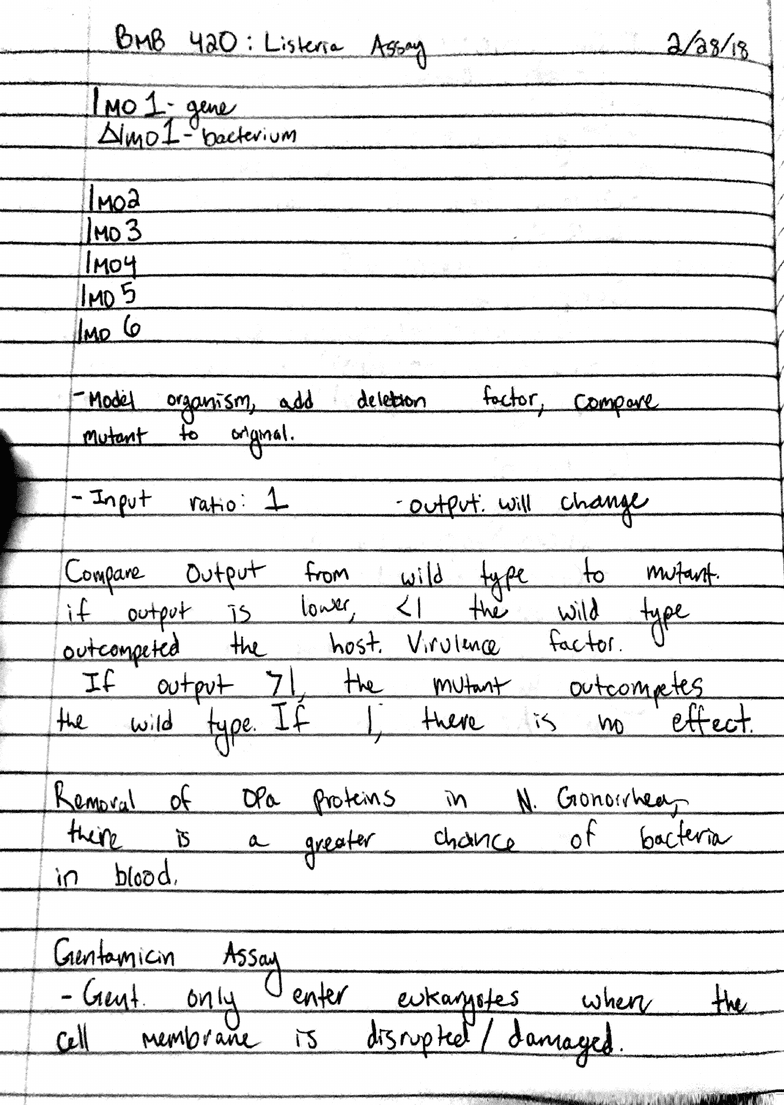 BMB 420: Listeria Assay 2/28/18
lmo 1- gene
Δlmo1- bacterium
lmo2
lmo 3
lmo4
lmo 5
lmo 6
-Model organism, add deletion factor, compare
mutant to original.
- Input ratio: 1 -output: will change
Compare Output from wild type to mutant.
if output is lower, <1 the wild type
outcompeted the host. Virulence factor.
If output >1, the mutant outcompetes
the wild type. If 1, there is no effect.
Removal of OPa proteins in N. Gonorrhea,
there is a greater chance of bacteria
in blood.
Gentamicin Assay
- Gent. only enter eukaryotes when the
cell membrane is disrupted/damaged.